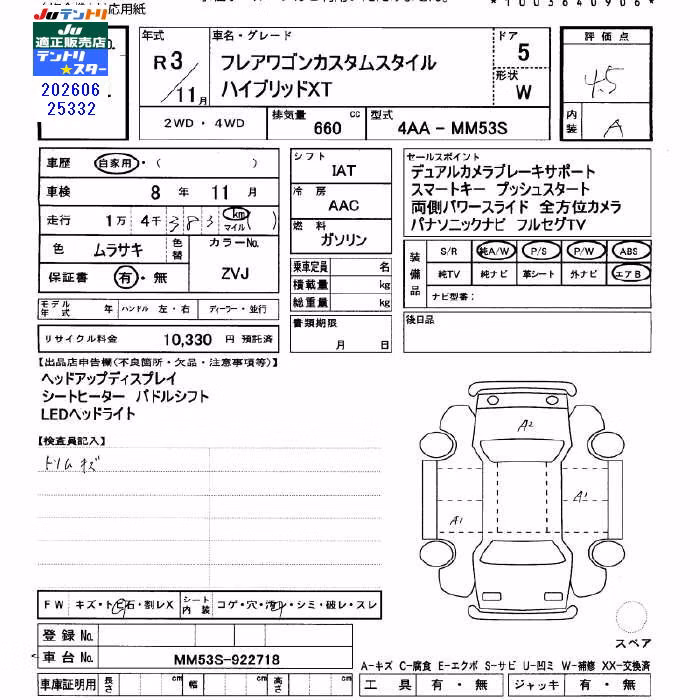 応用紙
*1003640906*
JUテントリ
JU
適正販売店
テントリ
★スター
202606
25332
年式
R3/11月
車名・グレード
フレアワゴンカスタムスタイル
ハイブリッドXT
ドア
5
形状
W
評価点
4.5
内装
A
2WD・4WD
排気量
660 cc
型式
4AA-MM53S
車歴
自家用・( )
車検
8年11月
走行
1万4千383 km マイル( )
色
ムラサキ
色替
カラーNo.
ZVJ
保証書
有・無
シフト
IAT
冷房
AAC
燃料
ガソリン
乗車定員 名
積載量 kg
総重量 kg
書類期限
月 日
セールスポイント
デュアルカメラブレーキサポート
スマートキー プッシュスタート
両側パワースライド 全方位カメラ
パナソニックナビ フルセグTV
装備品
S/R 純A/W P/S P/W ABS
純TV 純ナビ 革シート 外ナビ エアB
ナビ型番:
後日品
モデル年式 年 ハンドル 左・右 ディーラー・並行
リサイクル料金 10,330 円 預託済
【出品店申告欄(不良箇所・欠品・注意事項等)】
ヘッドアップディスプレイ
シートヒーター パドルシフト
LEDヘッドライト
【検査員記入】
トリムキズ
A2
A1
A1
FW キズ・トビ石・割レX
シート内装 コゲ・穴・汚レ・シミ・破レ・スレ
登録No.
車台No. MM53S-922718
車庫証明用 長さ cm 幅 cm 高さ cm
スペア
A-キズ C-腐食 E-エクボ S-サビ U-凹ミ W-補修 XX-交換済
工具 有・無 ジャッキ 有・無